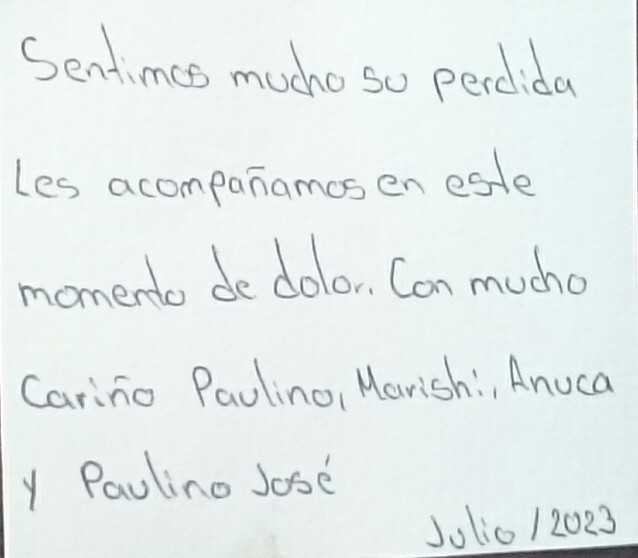 Sentimos mucho su perdida
Les acompañamos en este
momento de dolor. Con mucho
Cariño Paulino, Marishi, Anuca
y Paulino José
Julio / 2023